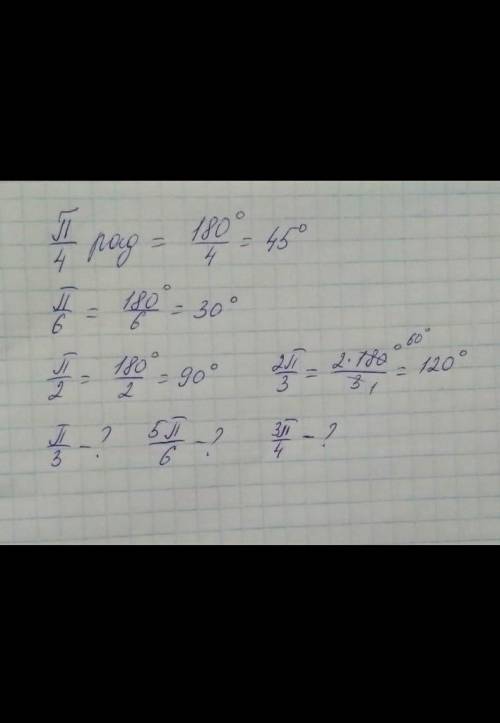 π/4 рад = 180°/4 = 45°
π/6 = 180°/6 = 30°
π/2 = 180°/2 = 90° 2π/3 = 2·180°/3 60° 1 = 120°
π/3 - ? 5π/6 - ? 3π/4 - ?